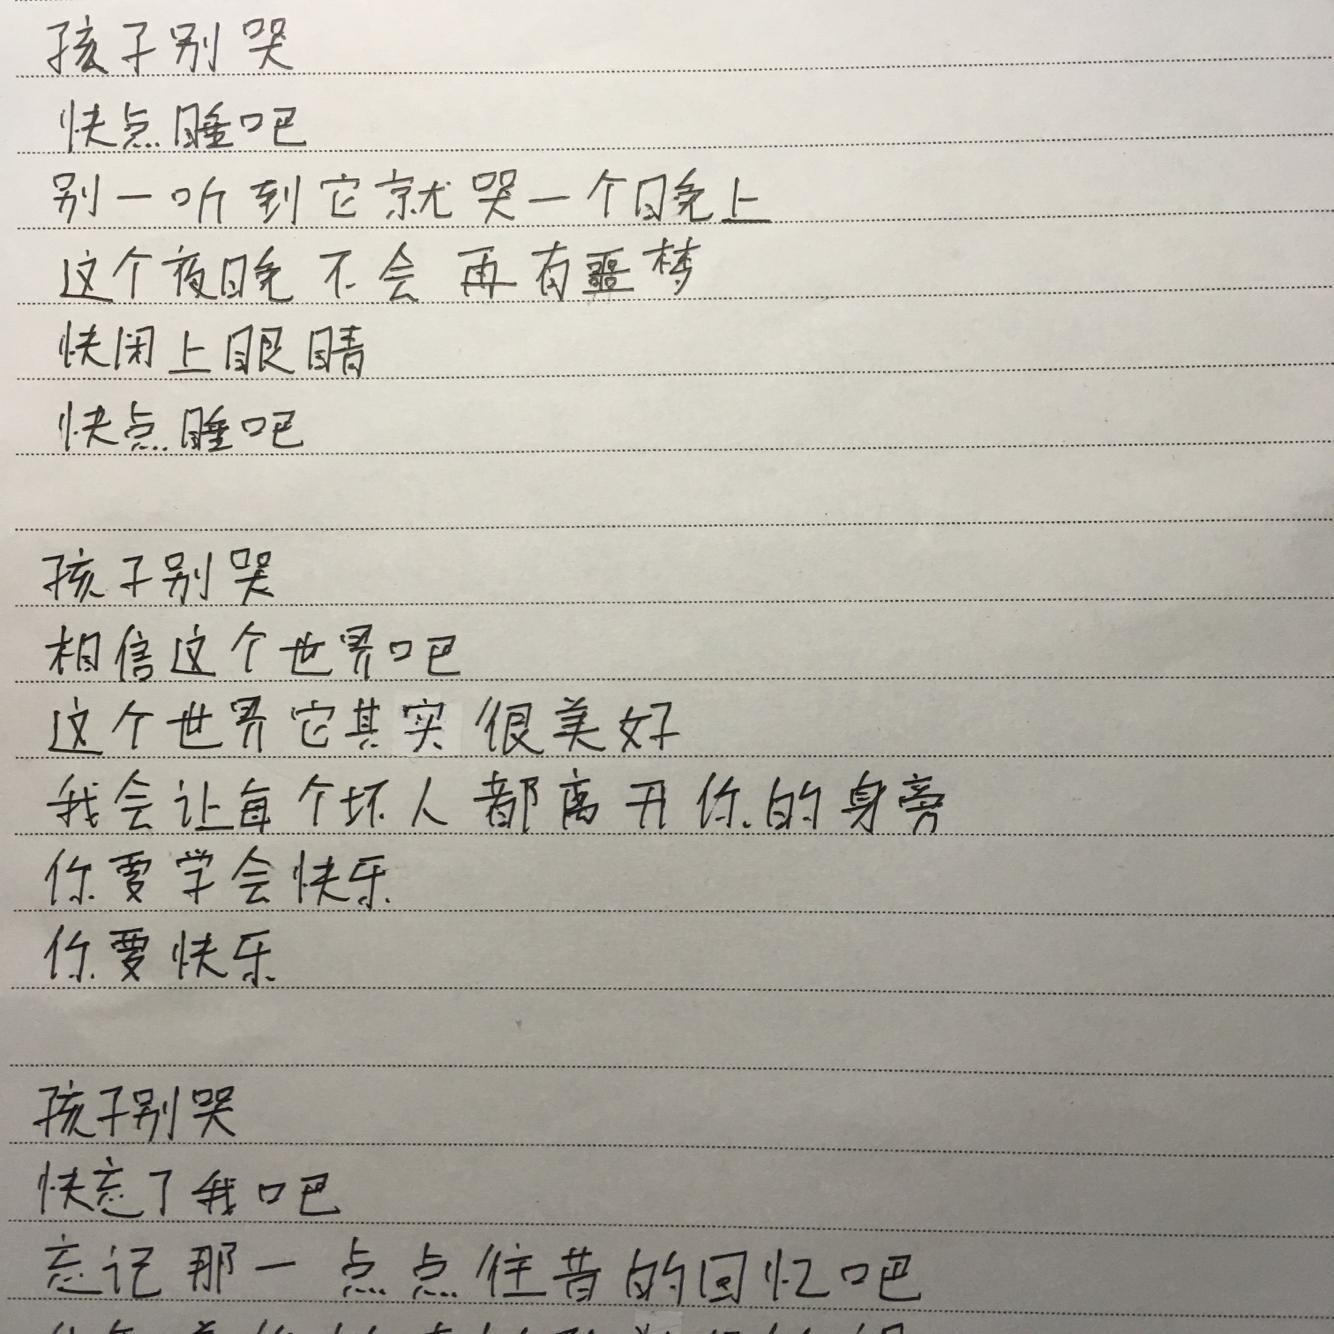 孩子别哭
快点睡吧
别一听到它就哭一个晚上
这个夜晚不会再有噩梦
快闭上眼睛
快点睡吧
孩子别哭
相信这个世界吧
这个世界它其实很美好
我会让每个坏人都离开你的身旁
你要学会快乐
你要快乐
孩子别哭
快忘了我吧
忘记那一点点往昔的回忆吧